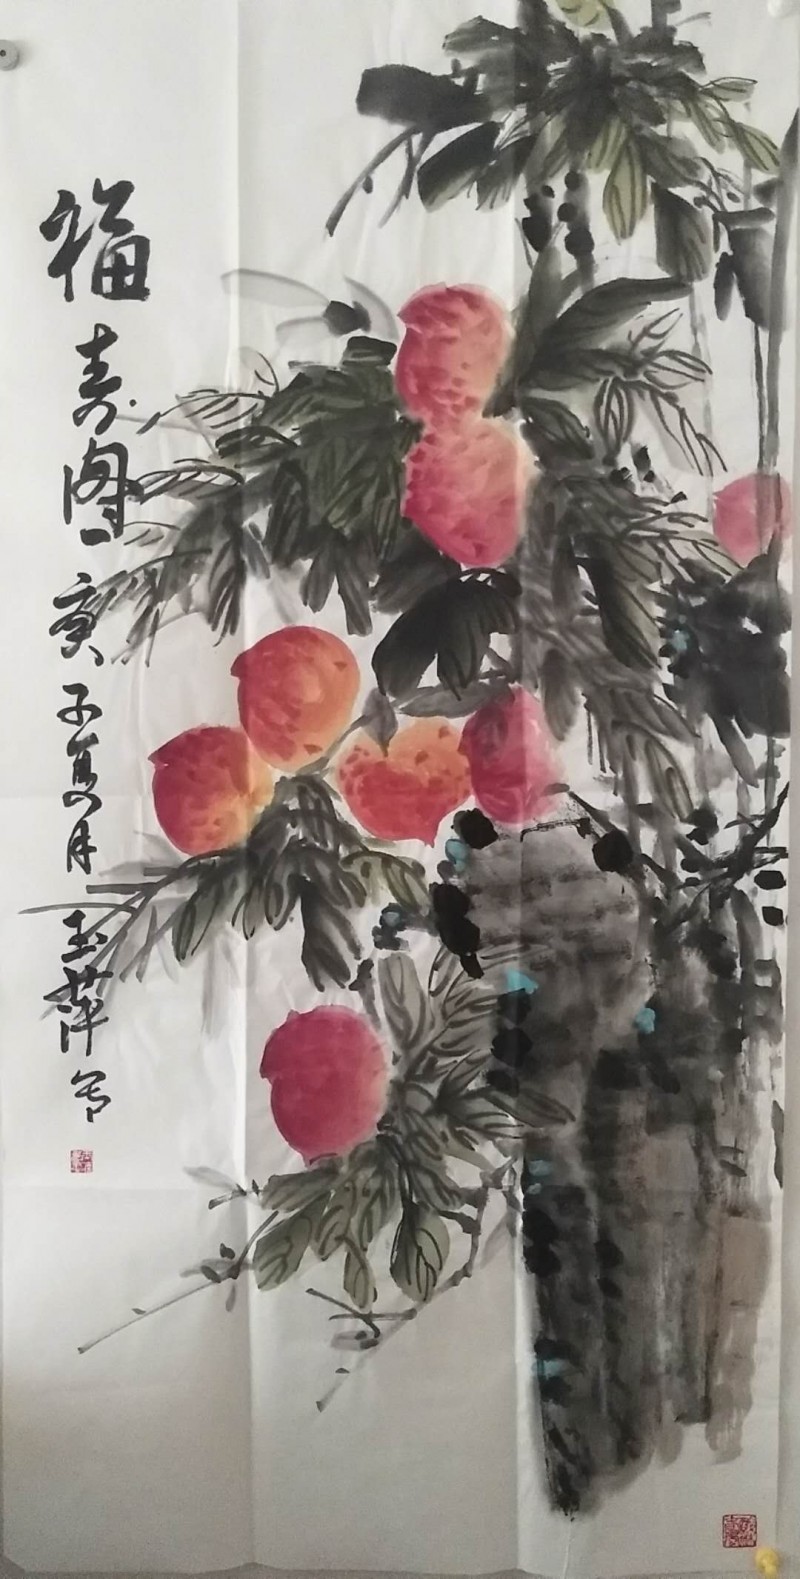 福寿图 庚子夏月 玉萍写